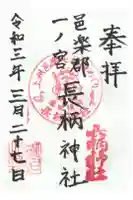 奉拝
邑楽郡
一ノ宮 長柄神社
令和三年三月二十七日